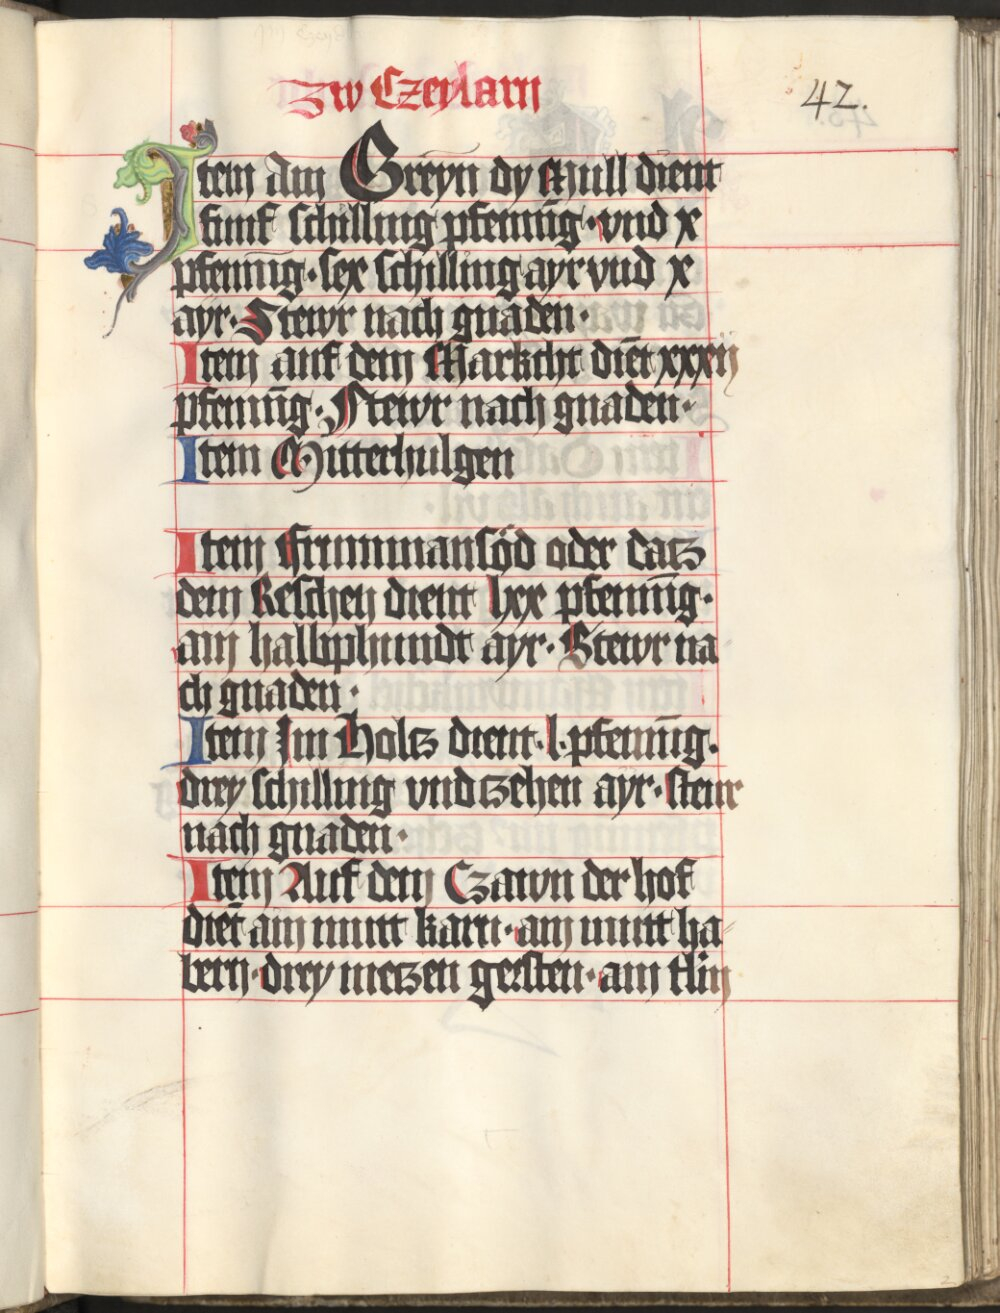 Zw Czeylarn
42.
Item Am Greyn dy Mull dient
funf schilling pfenning · vnd x
pfennīg · sex schilling ayr vnd x
ayr · Stewr nach gnaden ·
Item auf dem Markcht diēt xxxij
pfennīg · Stewr nach gnaden ·
Item Mitterhulgen
Item Frummansöd oder datz
dem Reschen dient lxx pfennīg ·
ain halbphundt ayr · Stewr na
ch gnaden ·
Item Im Holtz dient · l · pfennīg ·
drey schilling vnd tzehen ayr · steur
nach gnaden ·
Item Auf dem Czawn der hof
diēt ain mutt karn · ain mutt ha
bern · drey metzen gersten · ain